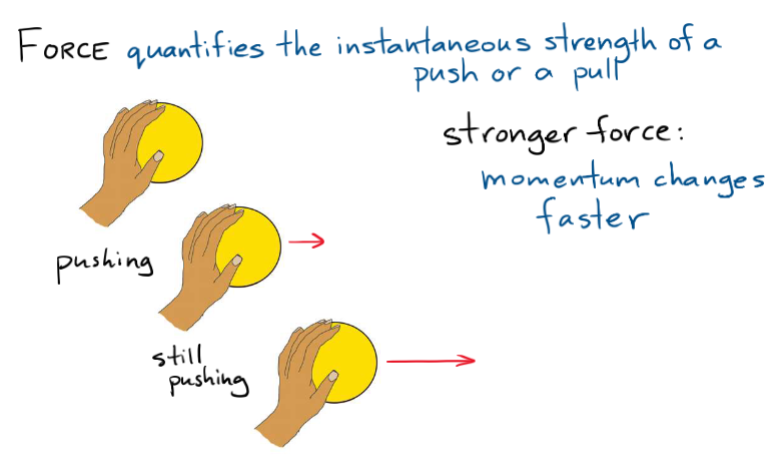 FORCE quantifies the instantaneous strength of a
push or a pull
stronger force:
momentum changes
faster
pushing
still
pushing